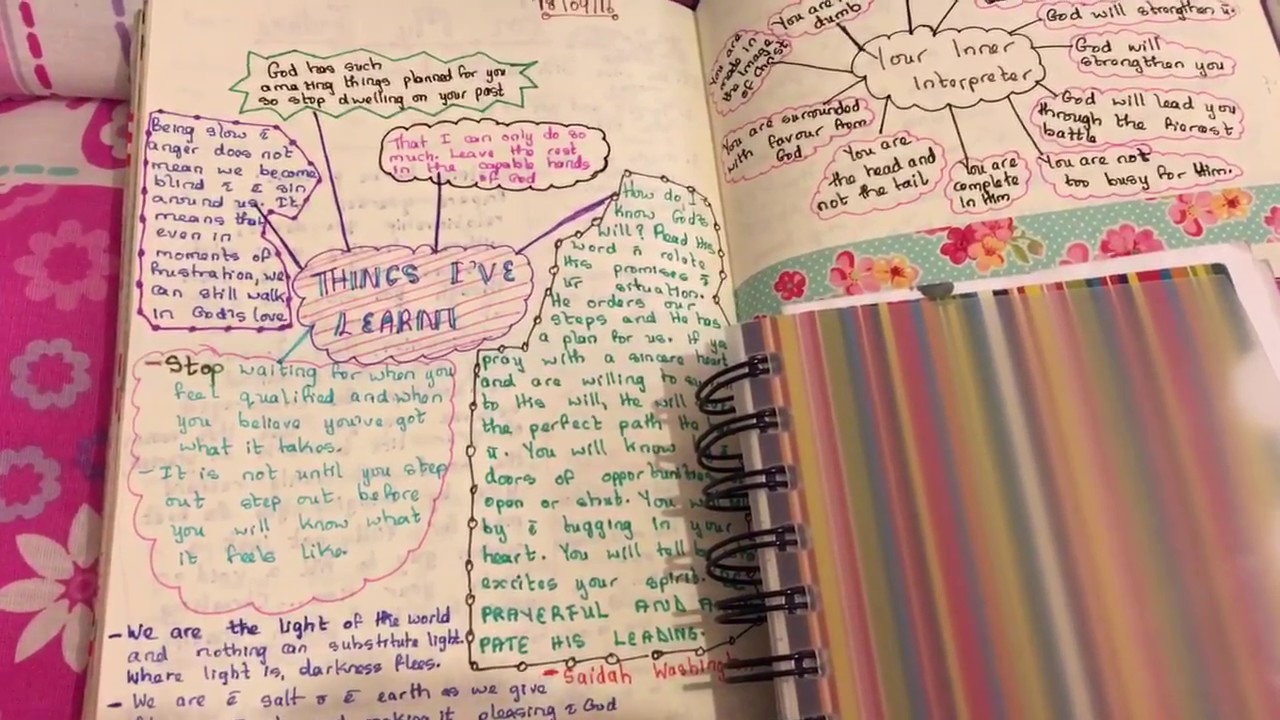 18/09/16
God has such
amazing things planned for you
so stop dwelling on your past
Being slow to
anger does not
mean we become
blind to the sin
around us. It
means that
even in
moments of
frustration, we
can still walk
in God's love
That I can only do so
much. Leave the rest
in the capable hands
of God
THINGS I'VE
LEARNT
How do I
know God's
will? Read His
word n relate
His promises
ur situation.
He orders our
steps and He has
a plan for us. If you
pray with a sincere heart
and are willing to
to His will, He will
the perfect path He
u. You will know
doors of opportunities
open or shut. You will
by tugging in your
heart. You will tell
excites your spirit.
PRAYERFUL AND
PATE HIS LEADING.
- Saidah
- Stop waiting for when you
feel qualified and when
you believe you've got
what it takes.
- It is not until you step
out step out before
you will know what
it feels like.
- We are the light of the world
and nothing can substitute light.
Where light is, darkness flees.
- We are salt earth as we give
making it pleasing God
You are
dumb
God will strengthen u.
You are
made in
the image
of Christ
Your Inner
Interpreter
God will
strengthen you
You are surrounded
with favour from
God
God will lead you
through the fiercest
battle
You are
the head and
not the tail
You are
complete
in Him
You are not
too busy for Him.